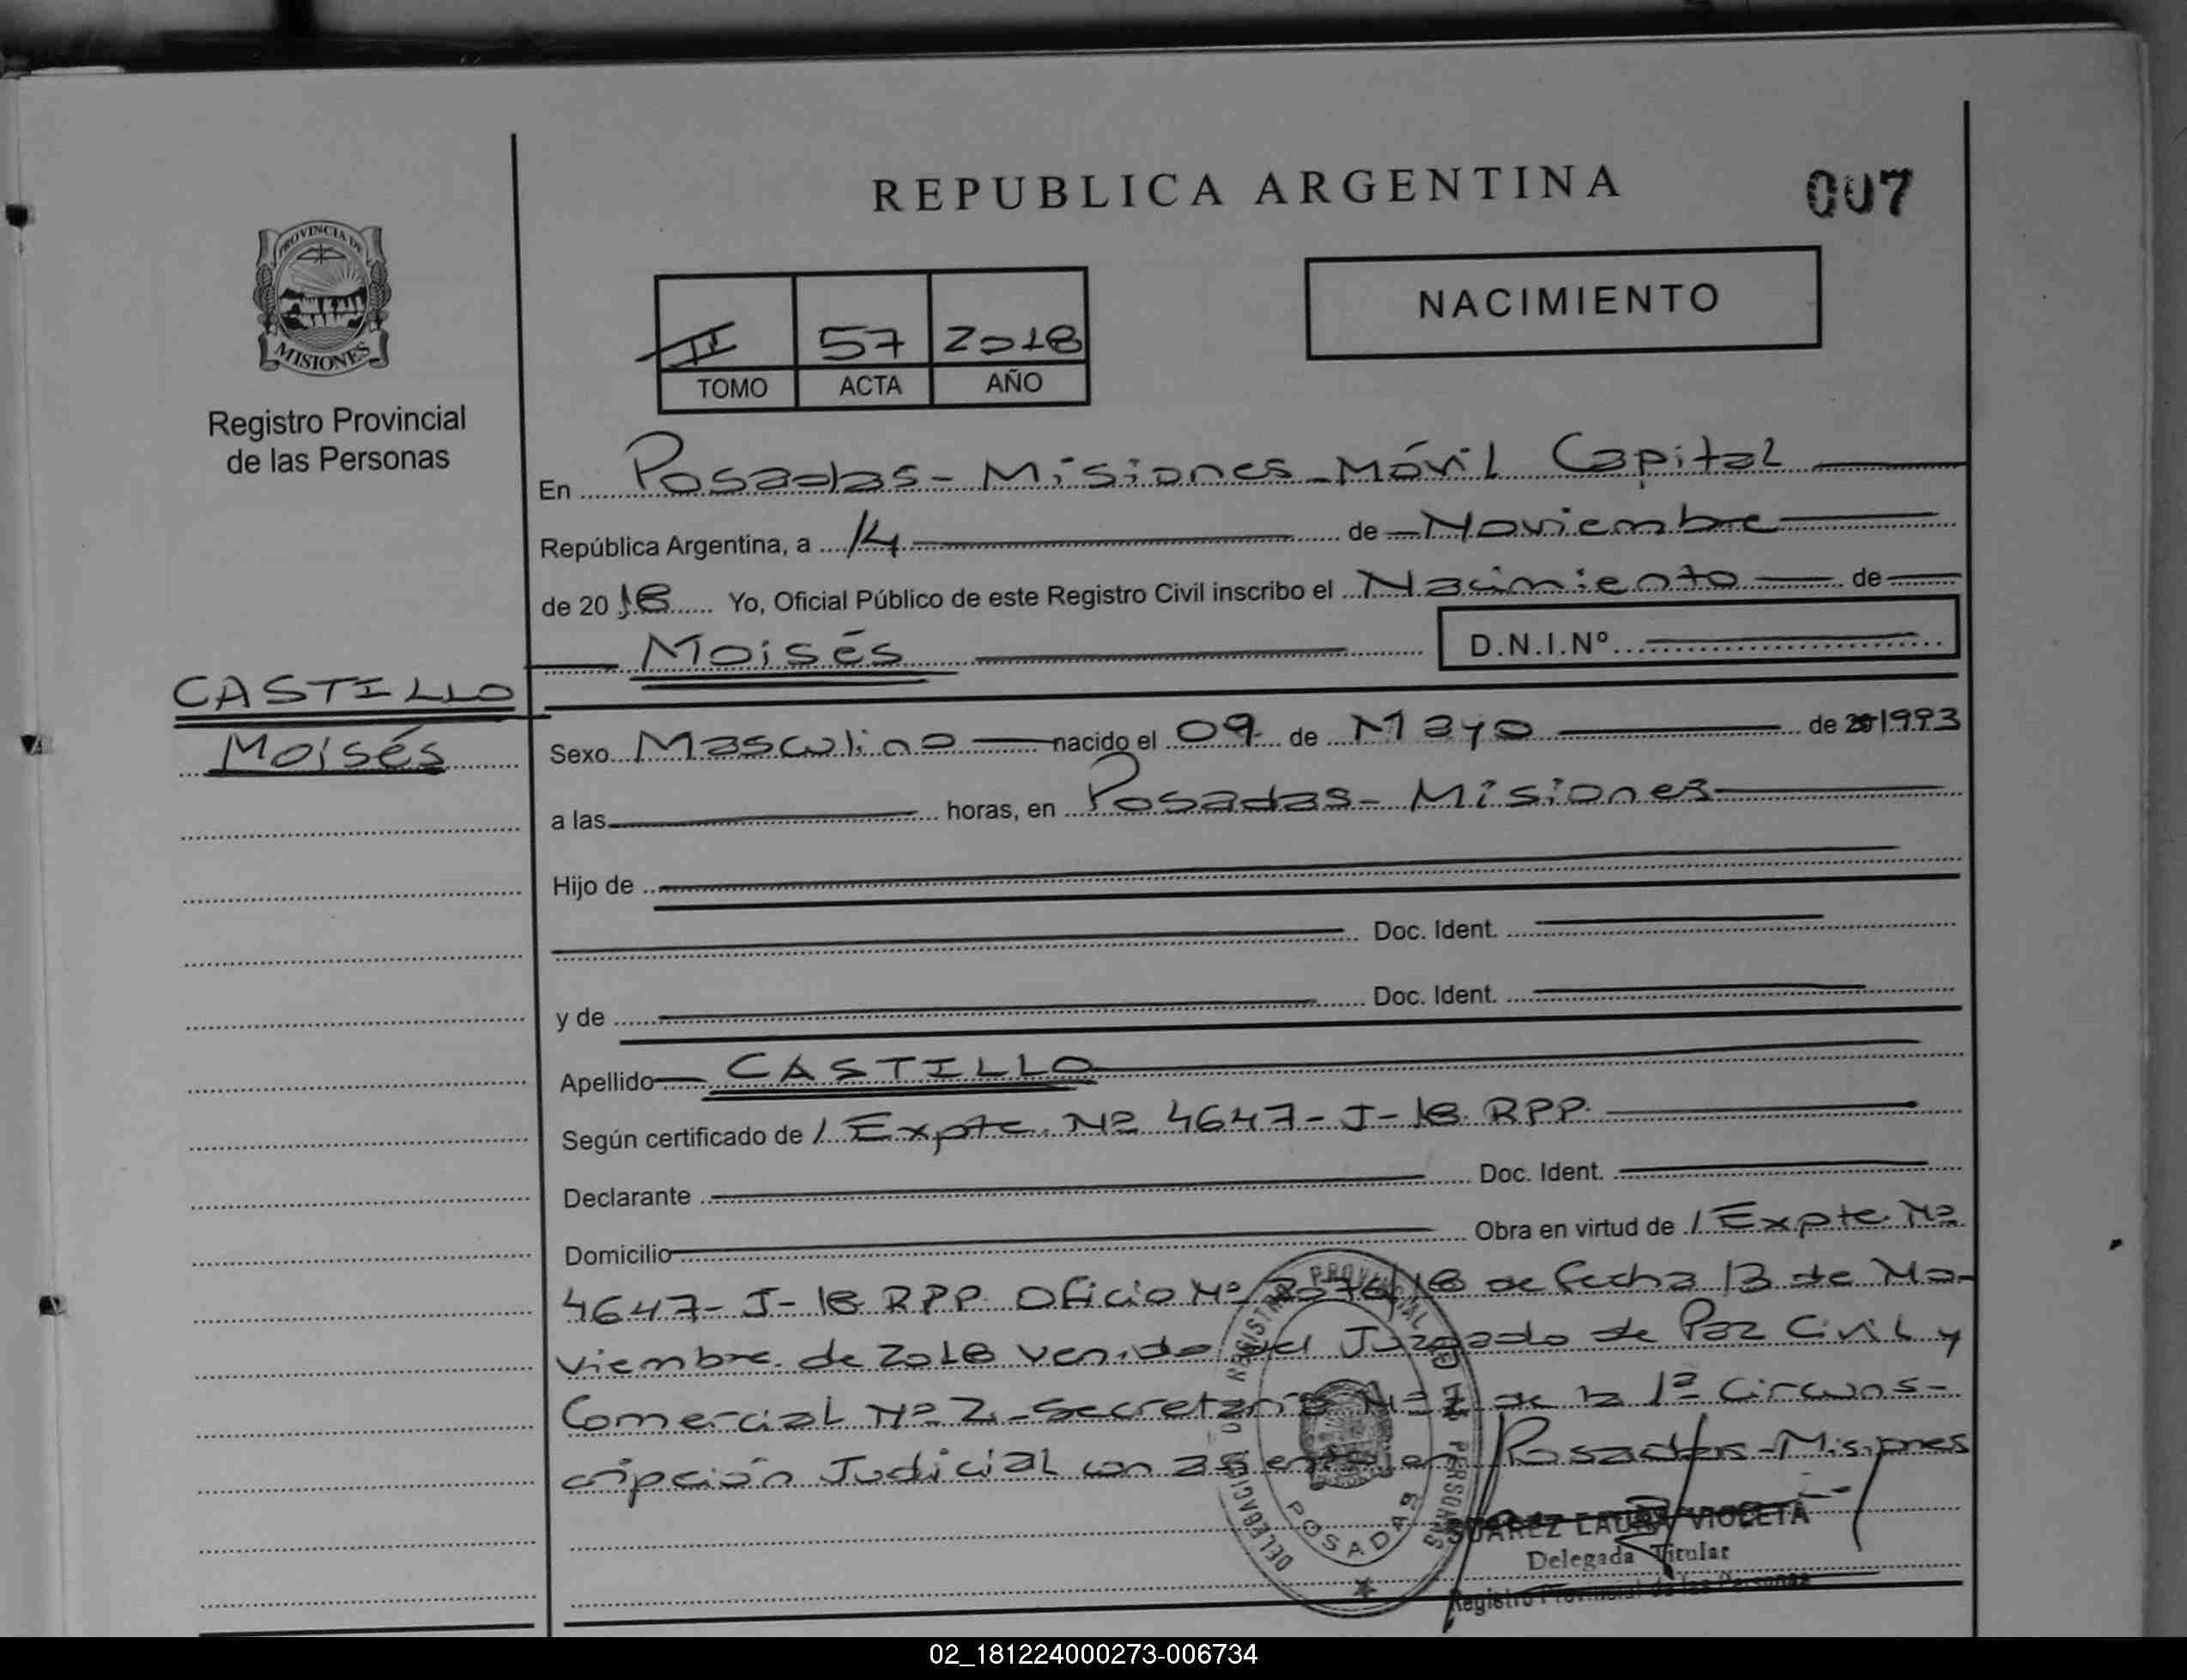 REPUBLICA ARGENTINA
007
PROVINCIA DE
MISIONES
Registro Provincial
de las Personas
II 57 2018
TOMO ACTA AÑO
NACIMIENTO
En Posadas - Misiones - Móvil Capital
República Argentina, a 14 de Noviembre
de 2018 Yo, Oficial Público de este Registro Civil inscribo el Nacimiento de
Moisés D.N.I.Nº
CASTILLO
Moisés
Sexo Masculino nacido el 09 de Mayo de 1993
a las horas, en Posadas - Misiones
Hijo de
Doc. Ident.
y de Doc. Ident.
Apellido CASTILLO
Según certificado de / Expte. Nº 4647-J-18 RPP
Declarante Doc. Ident.
Domicilio Obra en virtud de / Expte. Nº
4647-J-18 RPP Oficio Nº /18 de fecha 13 de No-
viembre de 2018 venido del Juzgado de Paz Civil y
Comercial Nº 2 - Secretaria de la 1ª Circuns-
cripción Judicial con asiento en Posadas - Misiones
REGISTRO PROVINCIAL DE LAS PERSONAS
DELEGACION
POSADAS
SUAREZ LAURA VIOLETA
Delegada Titular
Registro Provincial de las Personas
02_181224000273-006734